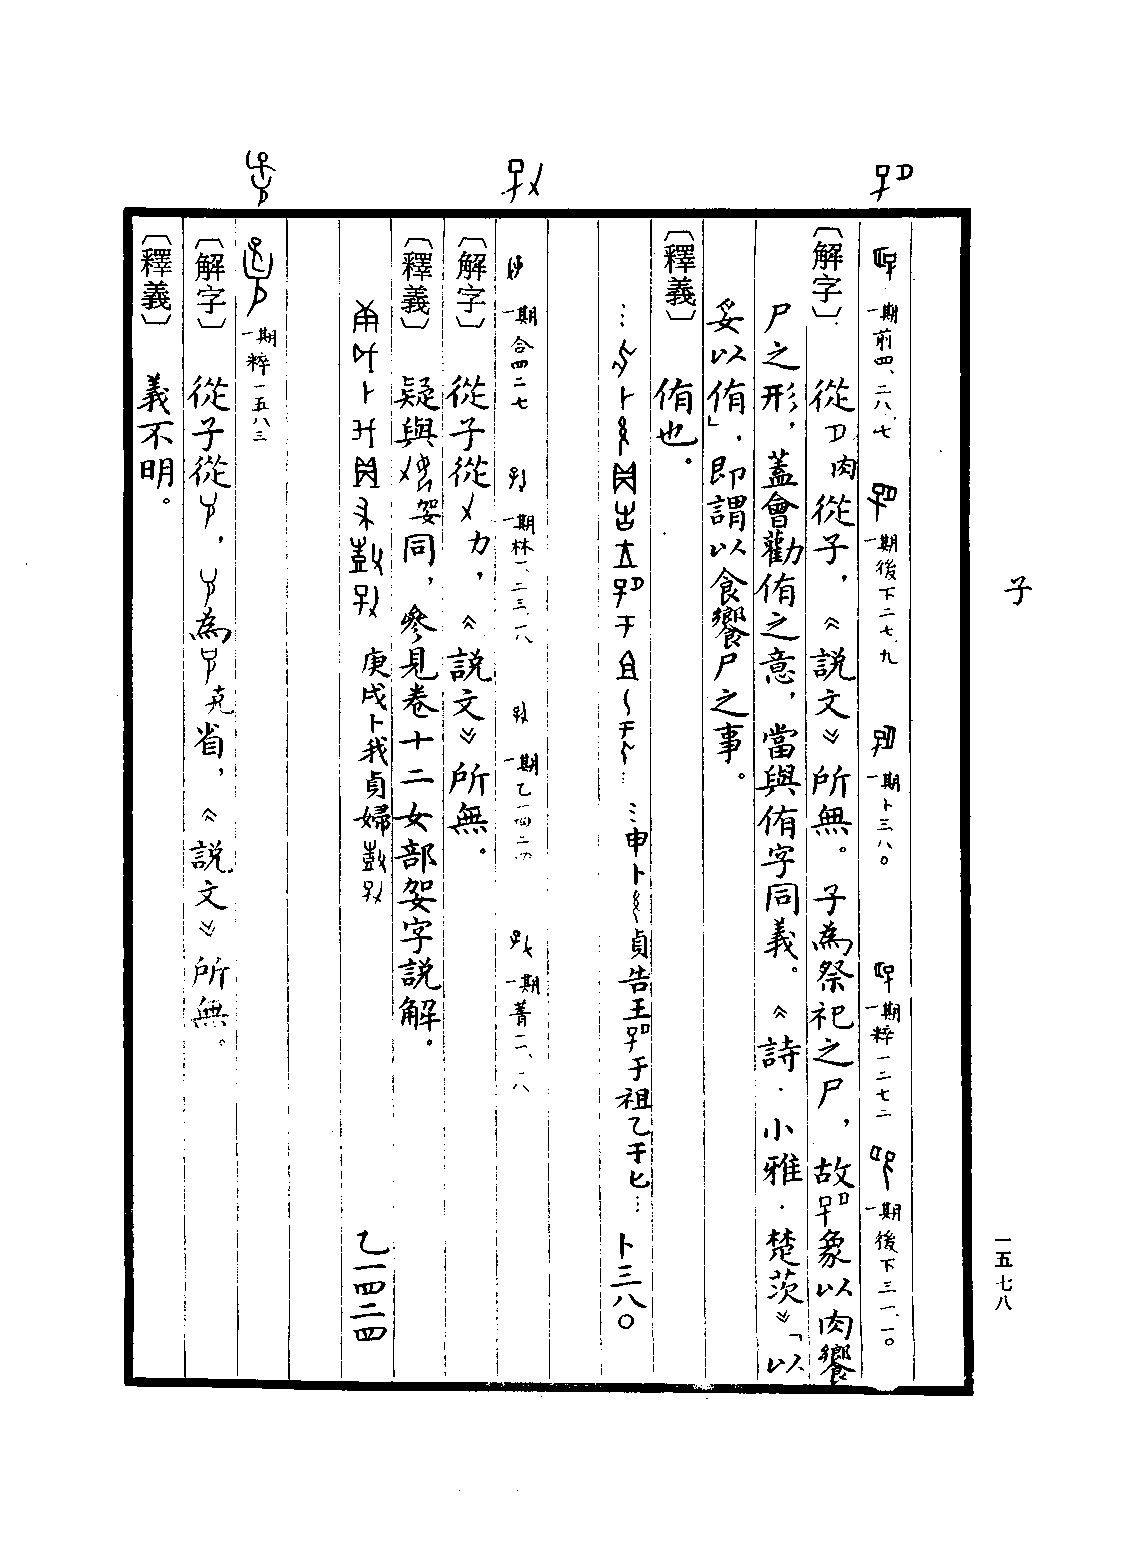 子
一五七八
一期前四、二八、七 一期後下二七、九 一期卜三八〇 一期粹一二七二 一期後下三一、一〇
〔解字〕 從肉從子，《説文》所無。子為祭祀之尸，故象以肉饗
尸之形，蓋會勸侑之意，當與侑字同義。《詩·小雅·楚茨》「以
妥以侑」，即謂以食饗尸之事。
〔釋義〕 侑也。
…申卜貞告王于祖乙于匕… 卜三八〇
一期合四二七 一期林一、二三、一八 一期乙一四二四 一期菁二、一八
〔解字〕 從子從力，《説文》所無。
〔釋義〕 疑與㚙同，參見卷十二女部㚙字説解。
庚戌卜我貞婦 乙一四二四
一期粹一五八三
〔解字〕 從子從，為克省，《説文》所無。
〔釋義〕 義不明。